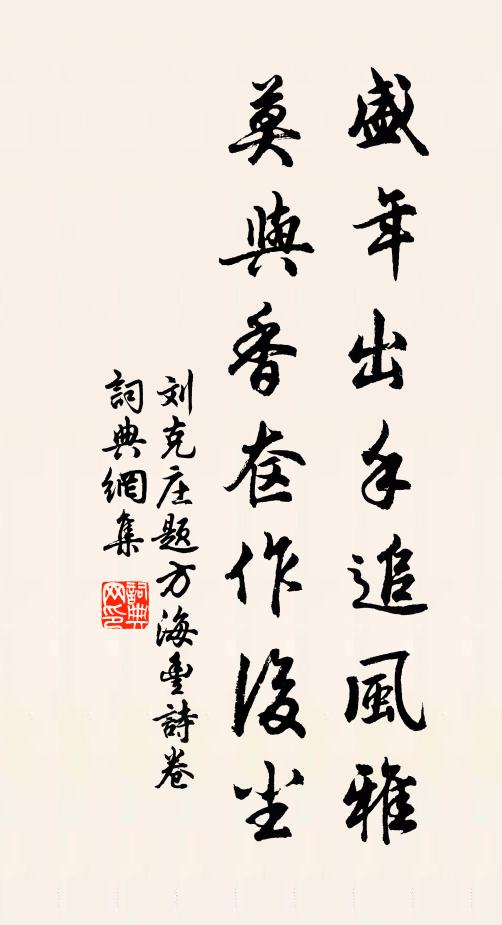 盛年出手追風雅
莫與香奁作後尘
刘克庄题方海豐詩卷
詞典網集
詞典网印